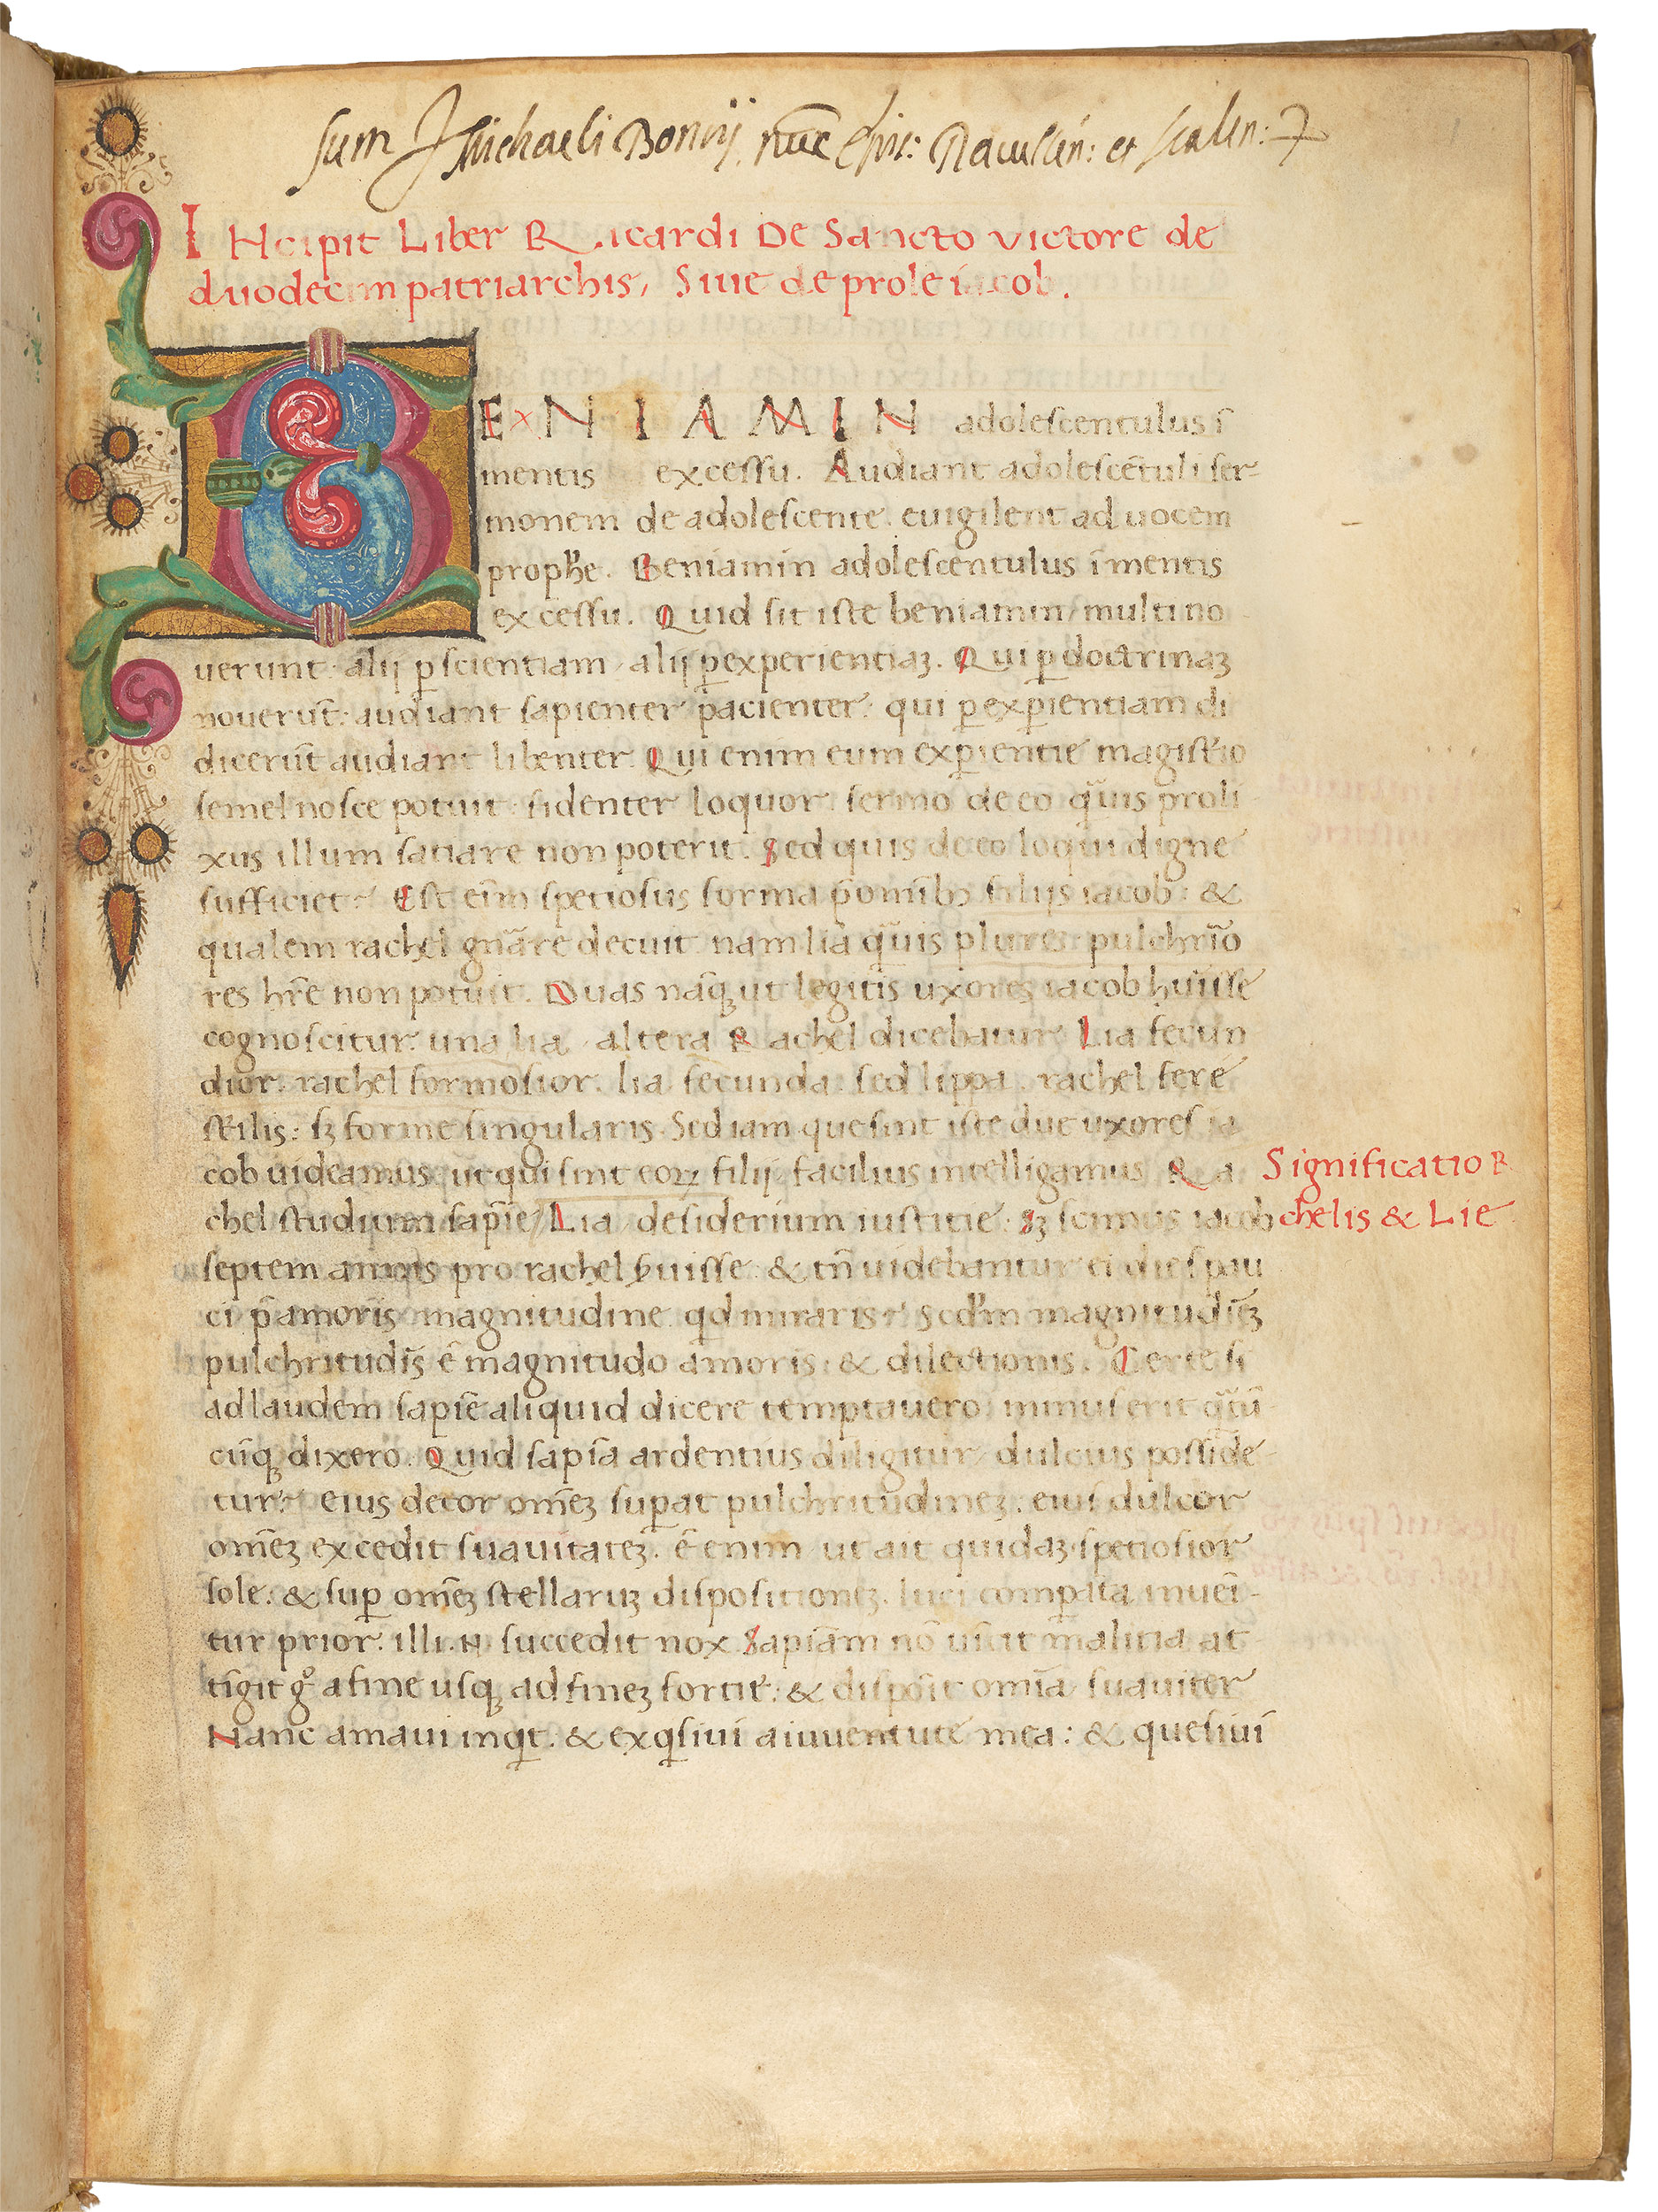 sum Michaeli Bonvij nũc Ep̃i: et
INcipit Liber Ricardi De Sancto victore de
duodecim patriarchis, Siue de prole iacob.
BENIAMIN adolescentulus ĩ
mentis excessu. Audiant adolescẽtuli ser-
monem de adolescente. euigilent ad uocem
prophe. Beniamin adolescentulus ĩ mentis
excessu. Quid sit iste beniamin, multi no
uerunt. alij ꝑ scientiam, alij ꝑ experientiaꝫ. Qui ꝑ doctrinaꝫ
nouerũt: audiant sapienter pacienter: qui ꝑ exꝑientiam di
dicerũt audiant libenter. Qui enim eum exꝑientie magist̃io
semel nosce potuit: fidenter loquor. sermo de eo q̃uis proli
xus illum satiare non poterit. Sed quis de eo loqui digne
sufficiet? Est eĩm spetiosus forma p̃ omĩbꝫ filijs iacob: &
qualem rachel gñare decuit. nam lia q̃uis plures pulchrio
res hr̃e non potuit. Duas nãqꝫ ut legitis uxores iacob huisse
cognoscitur. una lia, altera Rachel dicebatur. Lia fecun
dior. rachel formosior. lia fecunda sed lippa. rachel fere
st̃ilis: sꝫ forme singularis. Sed iam que sint iste due uxores ia
cob uideamus, ut qui sint eoꝝ filij facilius intelligamus. Ra
Significatio R
chel studium sapĩe, Lia desiderium iustitie. Sꝫ scimus iacob
chelis & Lie
septem annis pro rachel ẜuisse & tñ uidebantur ei dies pau
ci p̃ amoris magnitudine. qd miraris? Scd'm magnitudĩeꝫ
pulchritudĩs ẽ magnitudo amoris & dilectionis. Certe si
ad laudem sapĩe aliquid dicere temptauero, minus erit q̃cũ
cũqꝫ dixero. Quid sapĩa ardentius diligitur, dulcius posside
tur? eius decor om̃eꝫ suꝑat pulchritudineꝫ. eius dulcor
om̃eꝫ excedit suauitatẽꝫ. ẽ enim ut ait quidaꝫ spetiosior
sole: & suꝑ om̃eꝫ stellaruꝫ dispositioneꝫ. luci comꝑata inueĩ-
tur prior. illi .N. succedit nox Sapiãm nõ uĩcit malitia at
tigit gͦ a fine usqꝫ ad fineꝫ fortit̃: & dispõit omĩa suauiter
Nanc amaui inqt̃. & exqsiui a iuuentute mea: & quesiui